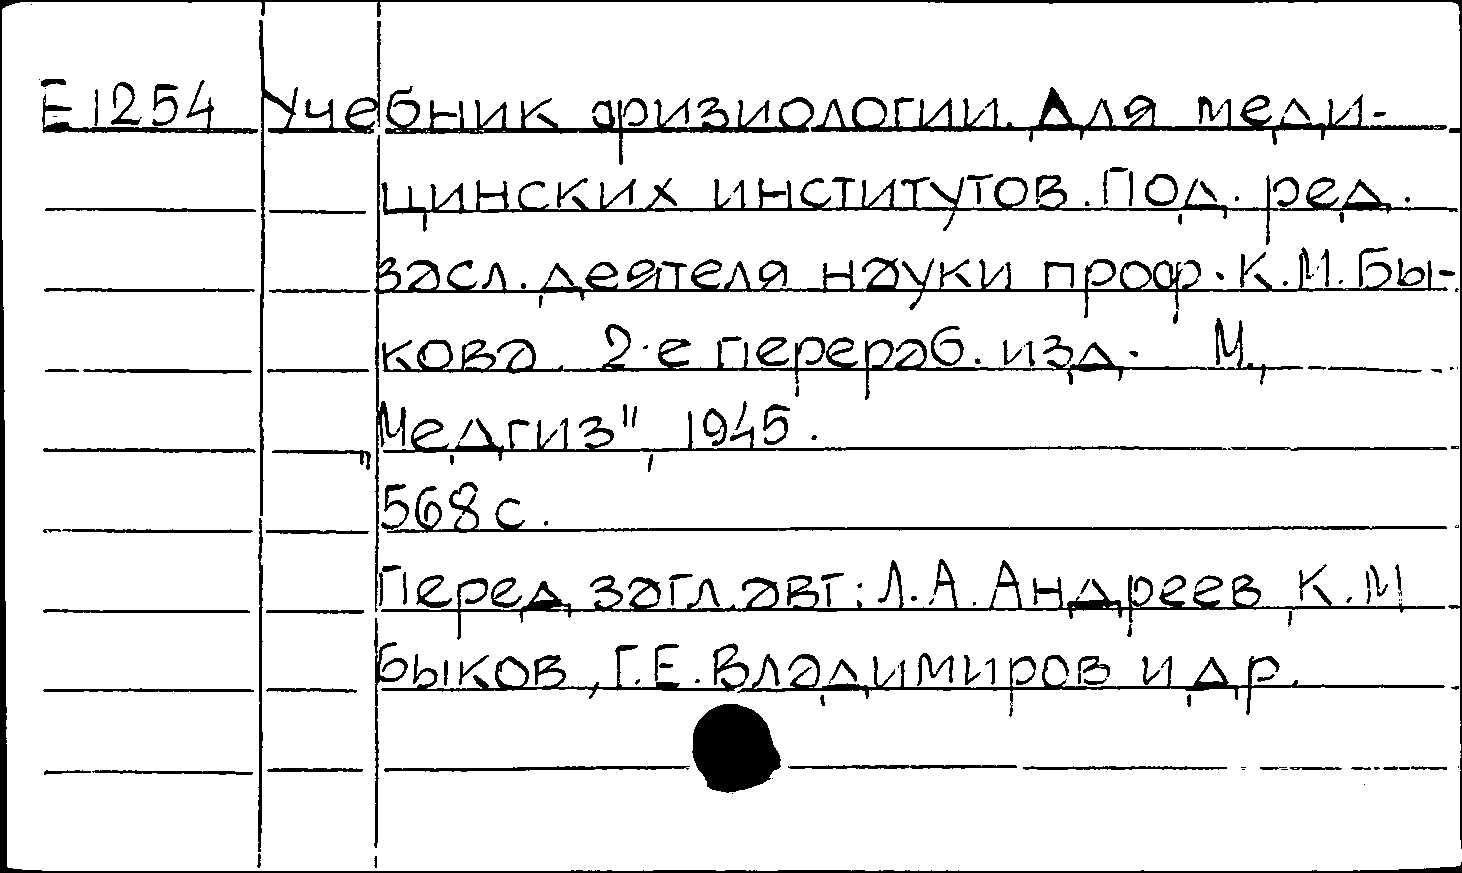 Е1254 Учебник физиологии. Для меди-
цинских институтов. Под. ред.
засл. деятеля науки проф. К.М. Бы-
кова. 2-е перераб. изд. М.,
„Медгиз", 1945.
568 с.
Перед загл. авт: Л.А. Андреев, К.М
Быков, Г.Е. Владимиров и др.